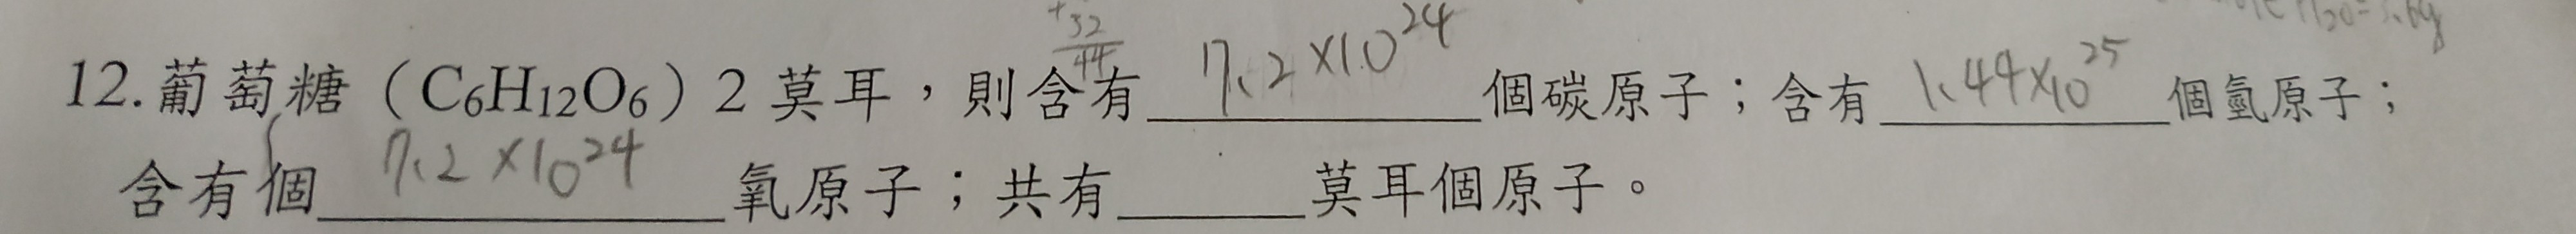 +32
44
12.葡萄糖（C₆H₁₂O₆）2 莫耳，則含有 7.2×10²⁴ 個碳原子；含有 1.44×10²⁵ 個氫原子；
含有個 7.2×10²⁴ 氧原子；共有______莫耳個原子。